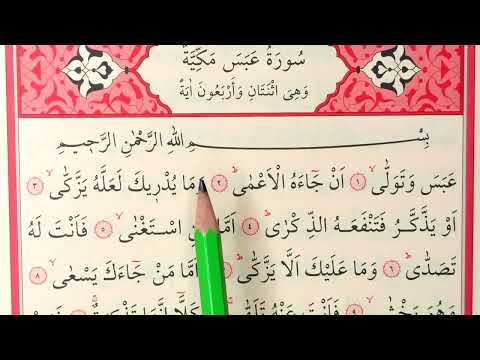 سُورَةُ عَبَسَ مَكِّيَّةٌ
وَهِىَ اثْنَتَانِ وَأَرْبَعُونَ اٰيَةً
بِسْمِ اللهِ الرَّحْمٰنِ الرَّحٖيمِ
عَبَسَ وَتَوَلّٰىۙ ١ اَنْ جَٓاءَهُ الْاَعْمٰىۜ ٢ وَمَا يُدْرٖيكَ لَعَلَّهُ يَزَّكّٰىۙ ٣
اَوْ يَذَّكَّرُ فَتَنْفَعَهُ الذِّكْرٰىۜ ٤ اَمَّا اسْتَغْنٰىۙ ٥ فَاَنْتَ لَهُ
تَصَدّٰىۜ ٦ وَمَا عَلَيْكَ اَلَّا يَزَّكّٰىۜ ٧ وَاَمَّا مَنْ جَٓاءَكَ يَسْعٰىۙ ٨
وَهُوَ يَخْشٰىۙ ٩ فَاَنْتَ عَنْهُ كَلَّٓا اِنَّهَا تَذْكِرَةٌۚ